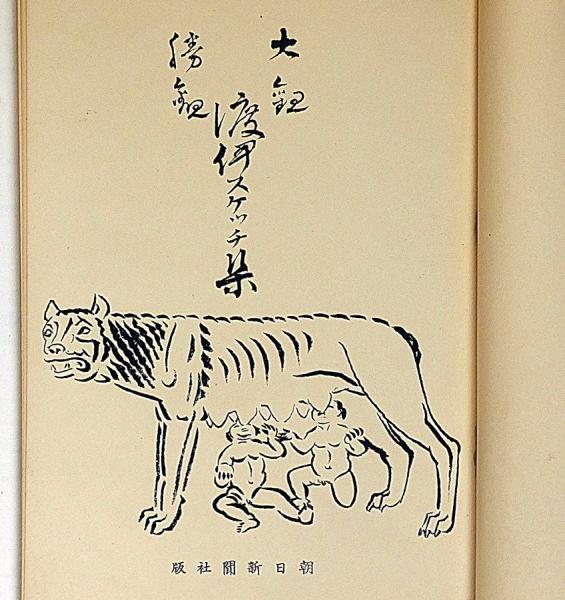 大觀
勝觀
渡伊スケッチ集
朝日新聞社版